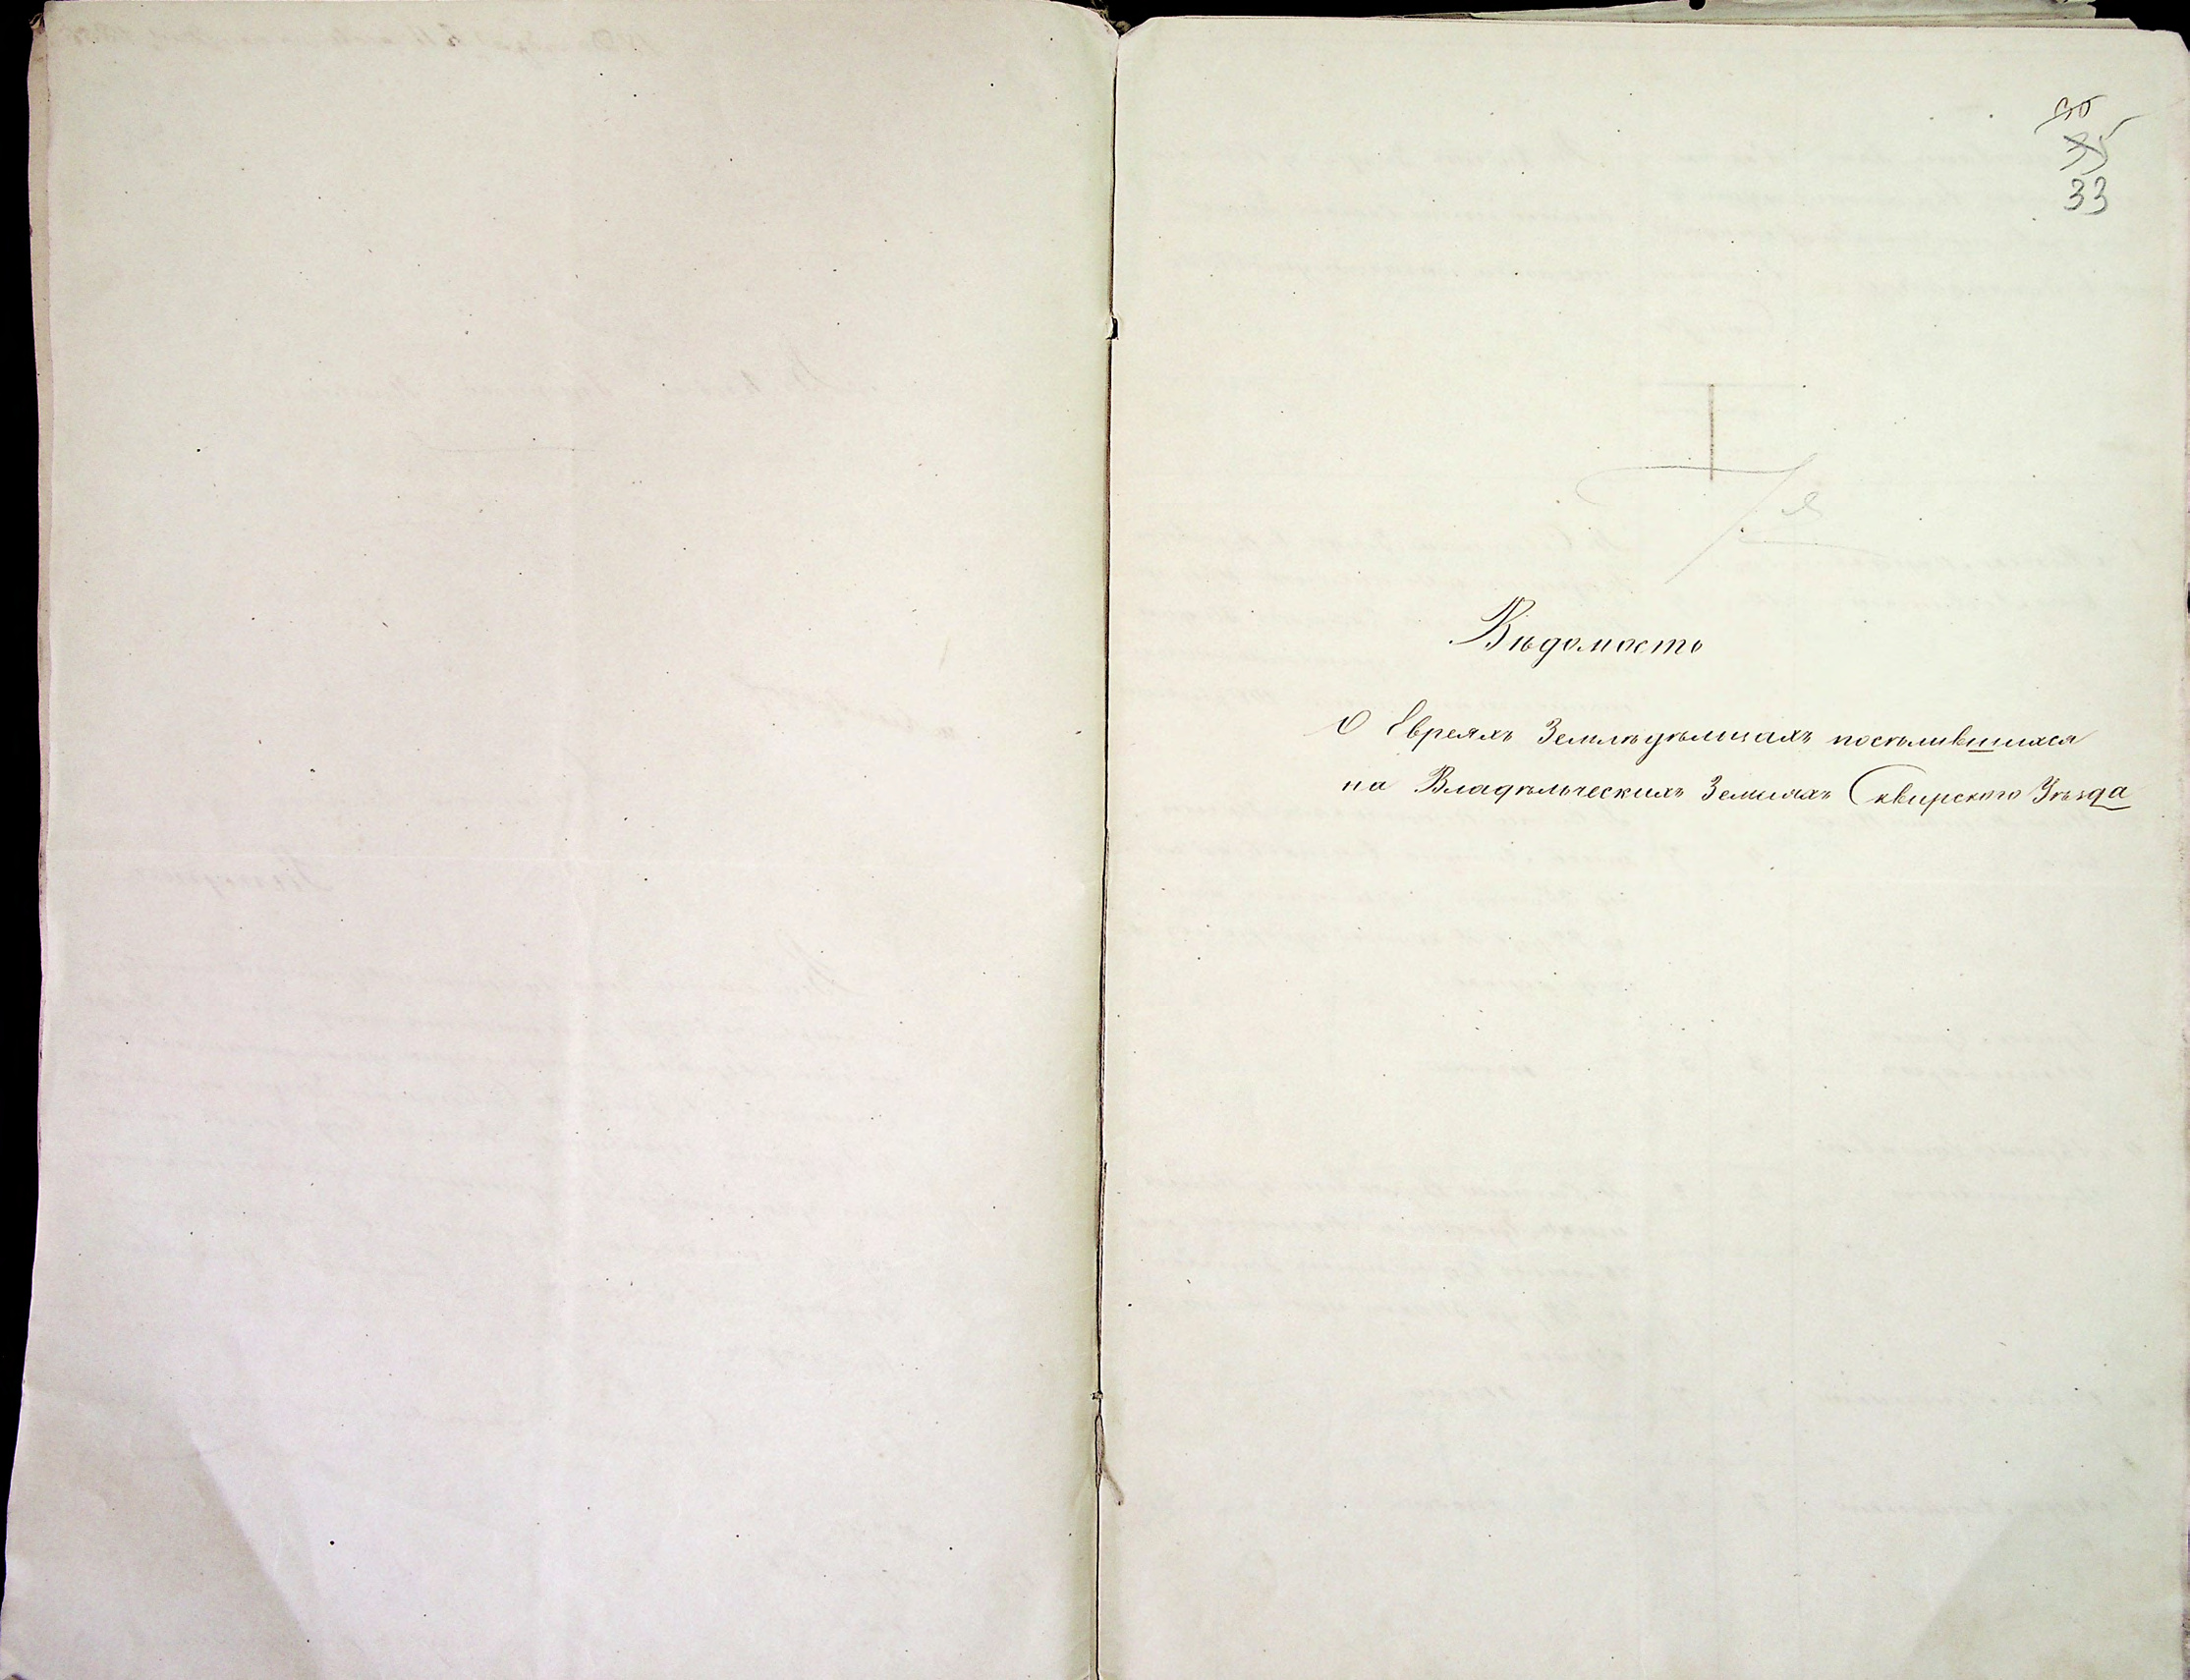 35
33
Вѣдомость
О Евреяхъ Земледѣльцахъ поселившихся
на Владѣльческихъ Земляхъ Сквирскаго Уѣзда